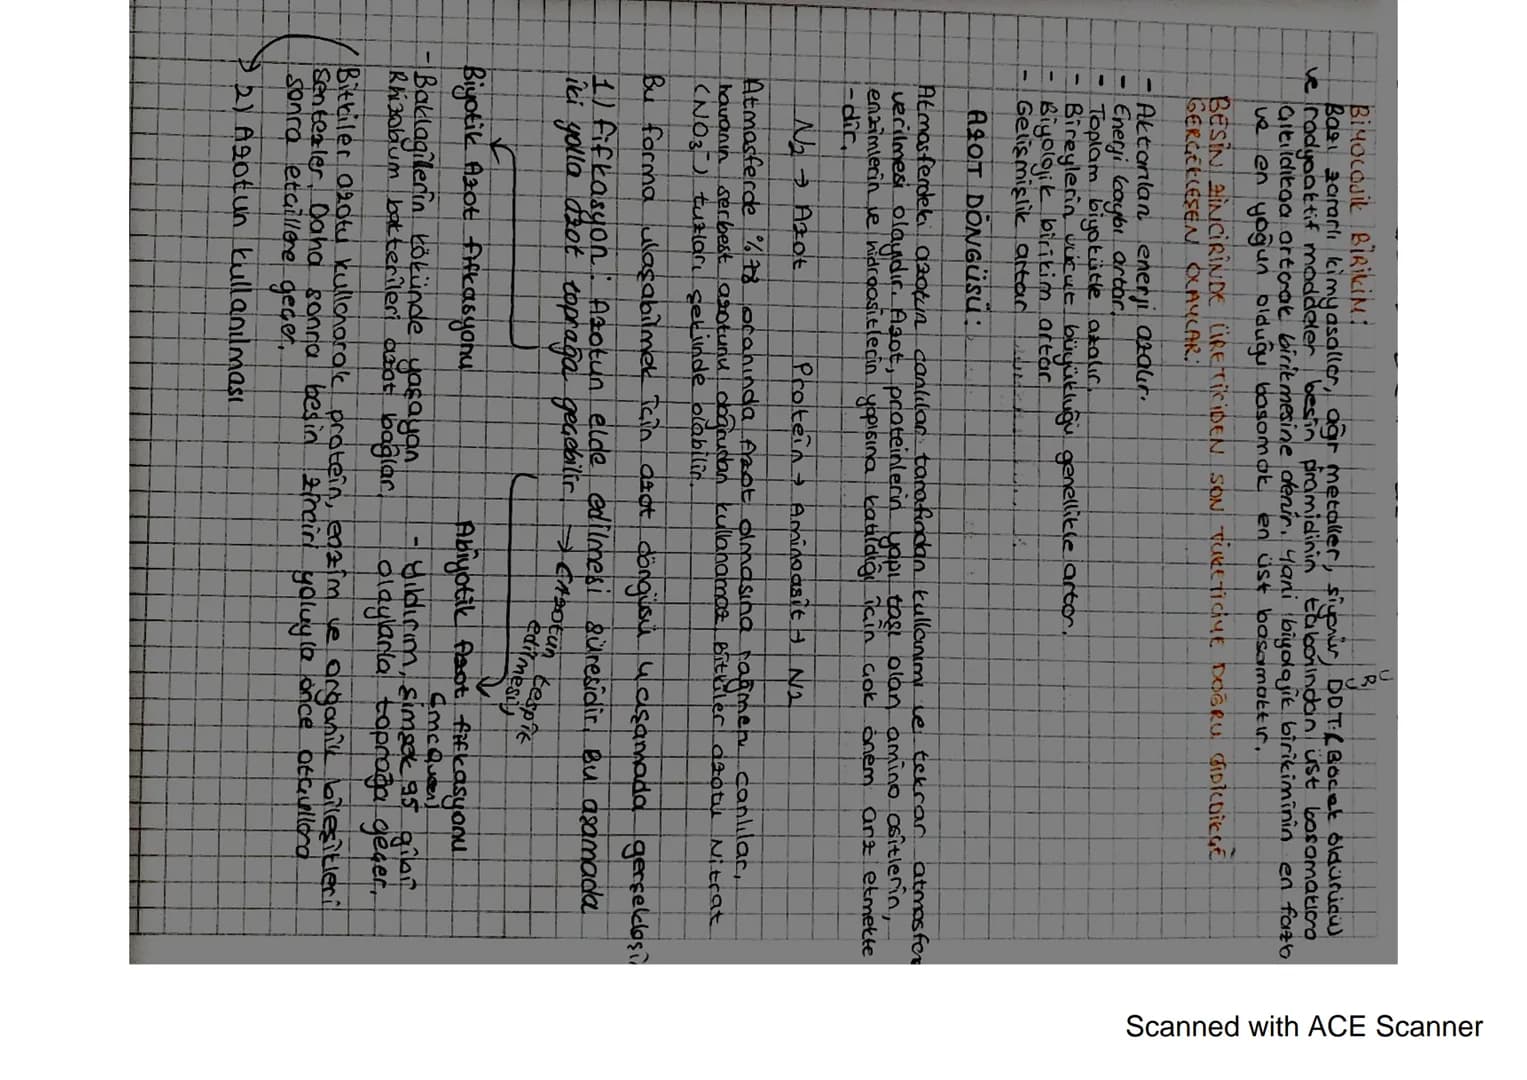 BİYOLOJİK BİRİKİM:
Bazı zararlı kimyasallar, ağır metaller, siyanür, DDT (Böcek öldürücü)
ve radyoaktif maddeler besin piramidinin tabanından üst basamaklara
çıkıldıkça artarak birikmesine denir. Yani biyolojik birikimin en fazla
ve en yoğun olduğu basamak en üst basamaktır.
BESİN ZİNCİRİNDE ÜRETİCİDEN SON TÜKETİCİYE DOĞRU GİDİLDİKÇE
GERÇEKLEŞEN OLAYLAR:
- Aktarılan enerji azalır.
- Enerji kaybı artar.
- Toplam biyokütle azalır.
- Bireylerin vücut büyüklüğü genellikle artar.
- Biyolojik birikim artar
- Gelişmişlik artar
AZOT DÖNGÜSÜ:
Atmosferdeki azotun canlılar tarafından kullanımı ve tekrar atmosfere
verilmesi olayıdır. Azot, proteinlerin yapı taşı olan amino asitlerin,
enzimlerin ve nidroasitlerin yapısına katıldığı için çok önem arz etmekte
-dir.
N2 → Azot Protein → Aminoasit → N2
Atmosferde %78 oranında Azot olmasına rağmen canlılar,
havanın serbest azotunu doğrudan kullanamaz Bitkiler azotu Nitrat
(NO3-) tuzları şeklinde alabilir.
Bu forma ulaşabilmek için azot döngüsü 4 aşamada gerçekleşir
1) fifkasyon: Azotun elde edilmesi süresidir. Bu aşamada
iki yolla azot toprağa geçebilir → (Azotun tespit
edilmesi)
Biyotik Azot fifkasyonu Abiyotik Azot fifkasyonu
(mcqueen)
- Baklagillerin kökünde yaşayan - Yıldırım, şimşek 95 gibi
Rhizobium bakterileri azot bağlar. olaylarla toprağa geçer.
Bitkiler azotu kullanarak protein, enzim ve organik bileşikleri
Sentezler. Daha sonra besin zinciri yoluyla önce otçullara
sonra etçillere geçer.
→ 2) Azotun kullanılması